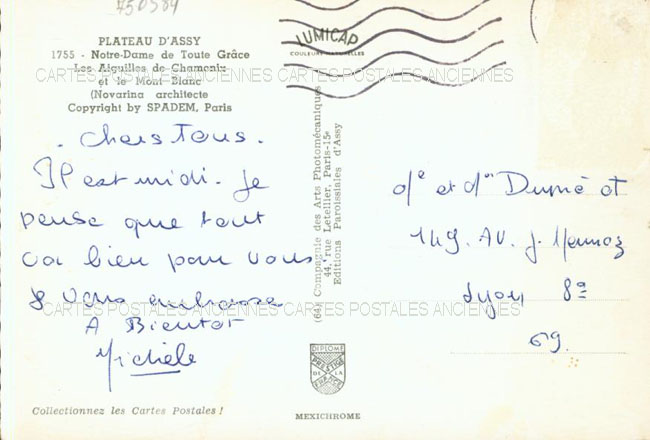 750584
PLATEAU D'ASSY
1755 - Notre-Dame de Toute Grâce
Les Aiguilles de Chamonix
et le Mont Blanc
(Novarina architecte
Copyright by SPADEM, Paris
LUMICAP
COULEURS NATURELLES
CARTES POSTALES ANCIENNES CARTES POSTALES ANCIENNES
. Chers Tous.
Il est midi. Je
pense que tout
va bien pour vous
Je vous embrasse
A Bientot
Michèle
(64) Compagnie des Arts Photomécaniques
44, rue Letellier, Paris-15e
Editions Paroissiales d'Assy
et
149. AV. J. Mermoz
Lyon 8e
69.
CARTES POSTALES ANCIENNES CARTES POSTALES ANCIENNES
DIPLOME
PRESTIGE
DE LA
FRANCE
Collectionnez les Cartes Postales !
MEXICHROME